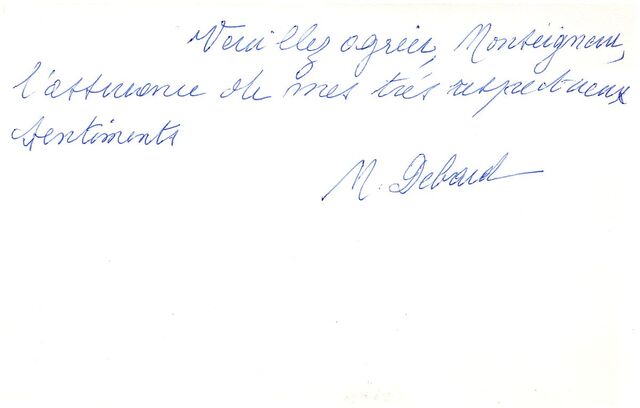 Veuillez agréer, Monseigneur,
l'assurance de mes très respectueux
sentiments
M. Debard